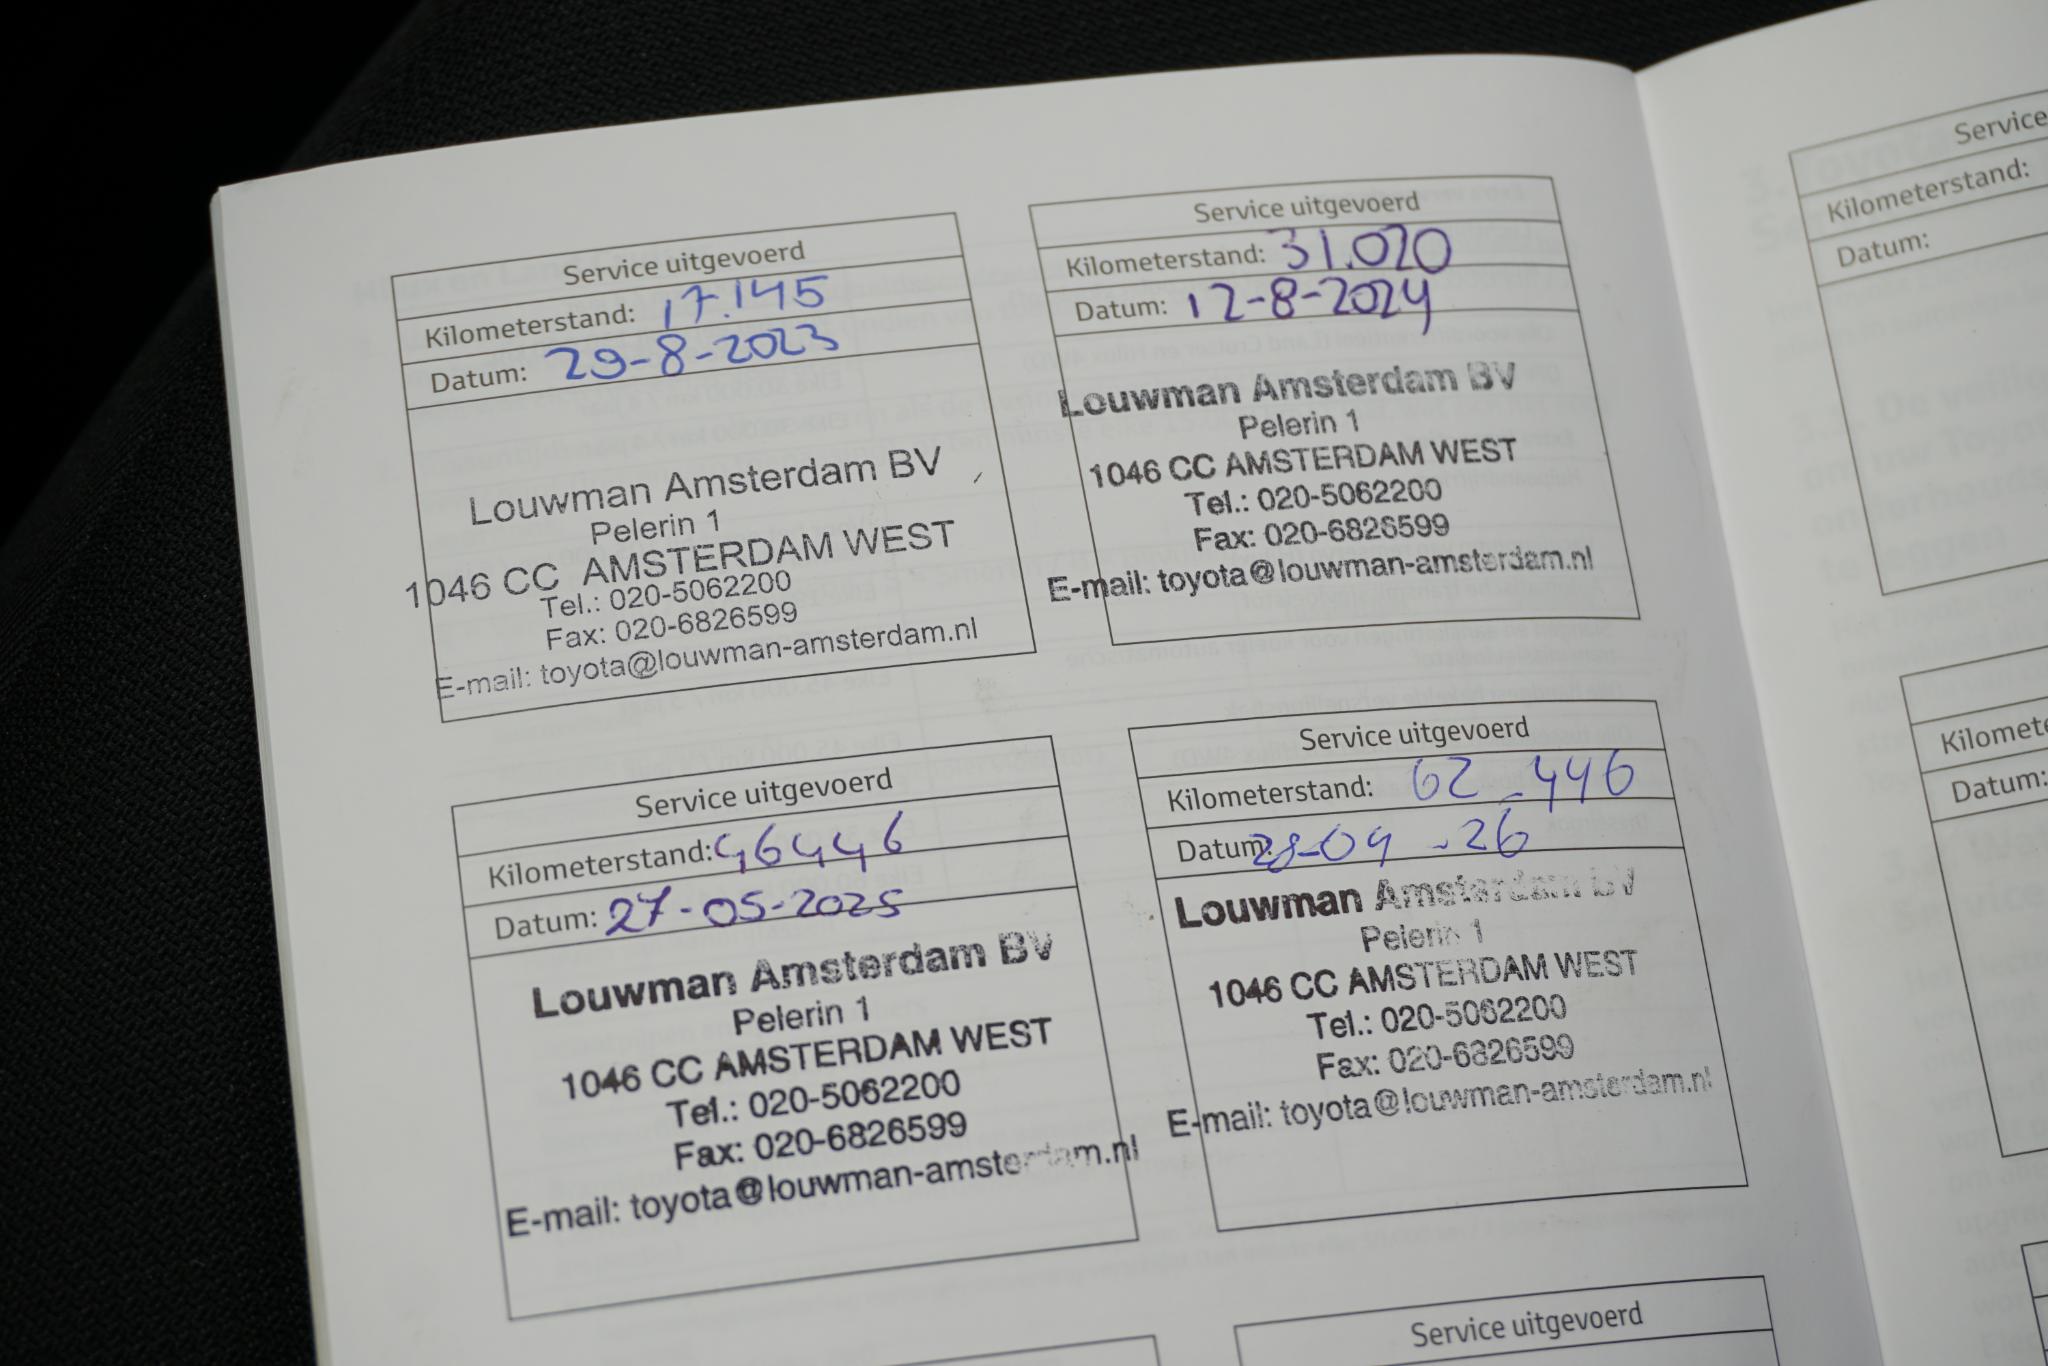 Service uitgevoerd
Kilometerstand: 17.145
Datum: 29-8-2023
Louwman Amsterdam BV
Pelerin 1
1046 CC AMSTERDAM WEST
Tel.: 020-5062200
Fax: 020-6826599
E-mail: toyota@louwman-amsterdam.nl
Service uitgevoerd
Kilometerstand: 31.020
Datum: 12-8-2024
Louwman Amsterdam BV
Pelerin 1
1046 CC AMSTERDAM WEST
Tel.: 020-5062200
Fax: 020-6826599
E-mail: toyota@louwman-amsterdam.nl
Service uitgevoerd
Kilometerstand: 46446
Datum: 27-05-2025
Louwman Amsterdam BV
Pelerin 1
1046 CC AMSTERDAM WEST
Tel.: 020-5062200
Fax: 020-6826599
E-mail: toyota@louwman-amsterdam.nl
Service uitgevoerd
Kilometerstand: 62.446
Datum: 28-04-26
Louwman Amsterdam BV
Pelerin 1
1046 CC AMSTERDAM WEST
Tel.: 020-5062200
Fax: 020-6826599
E-mail: toyota@louwman-amsterdam.nl
Service uitgevoerd
Service
Kilometerstand:
Datum:
Kilomete
Datum: